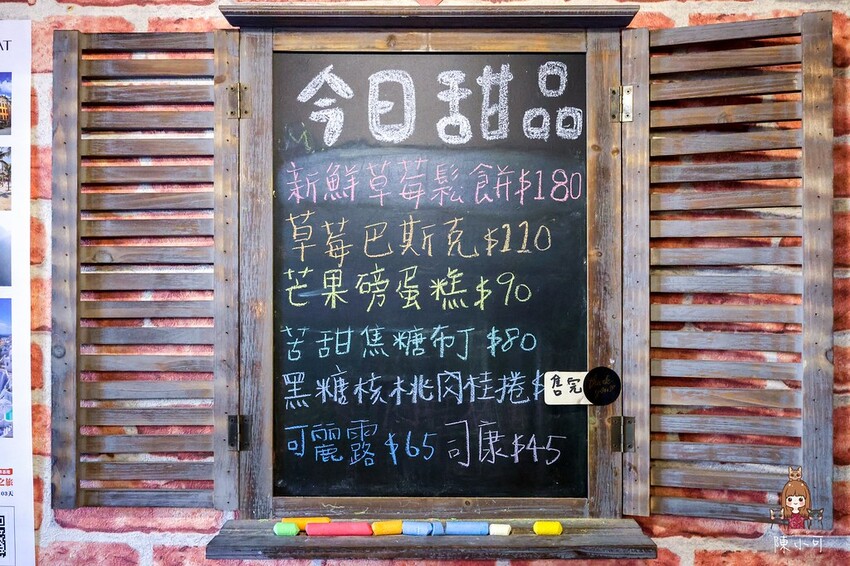 今日甜品
新鮮草莓鬆餅$180
草莓巴斯克$110
芒果磅蛋糕$90
苦甜焦糖布丁$80
黑糖核桃肉桂捲$
售完
可麗露$65 司康$45
AT
之旅
陳小可